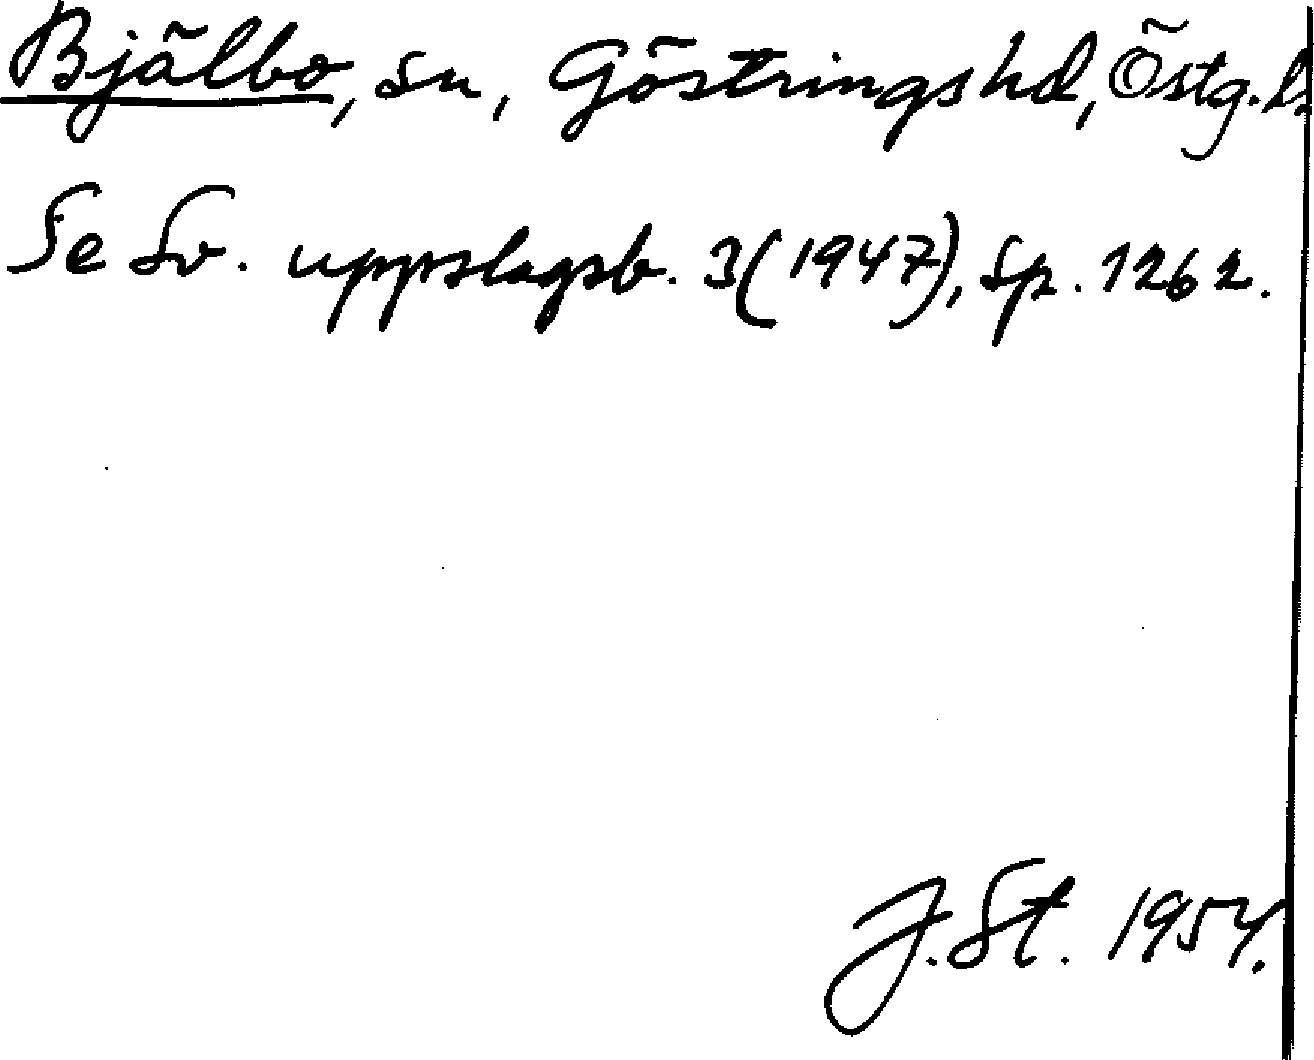 Bjälbo, sn, Göstringshd, Östg. l.
Se Sv. uppslagsb. 3 (1947), sp. 1262.
J. St. 1954.